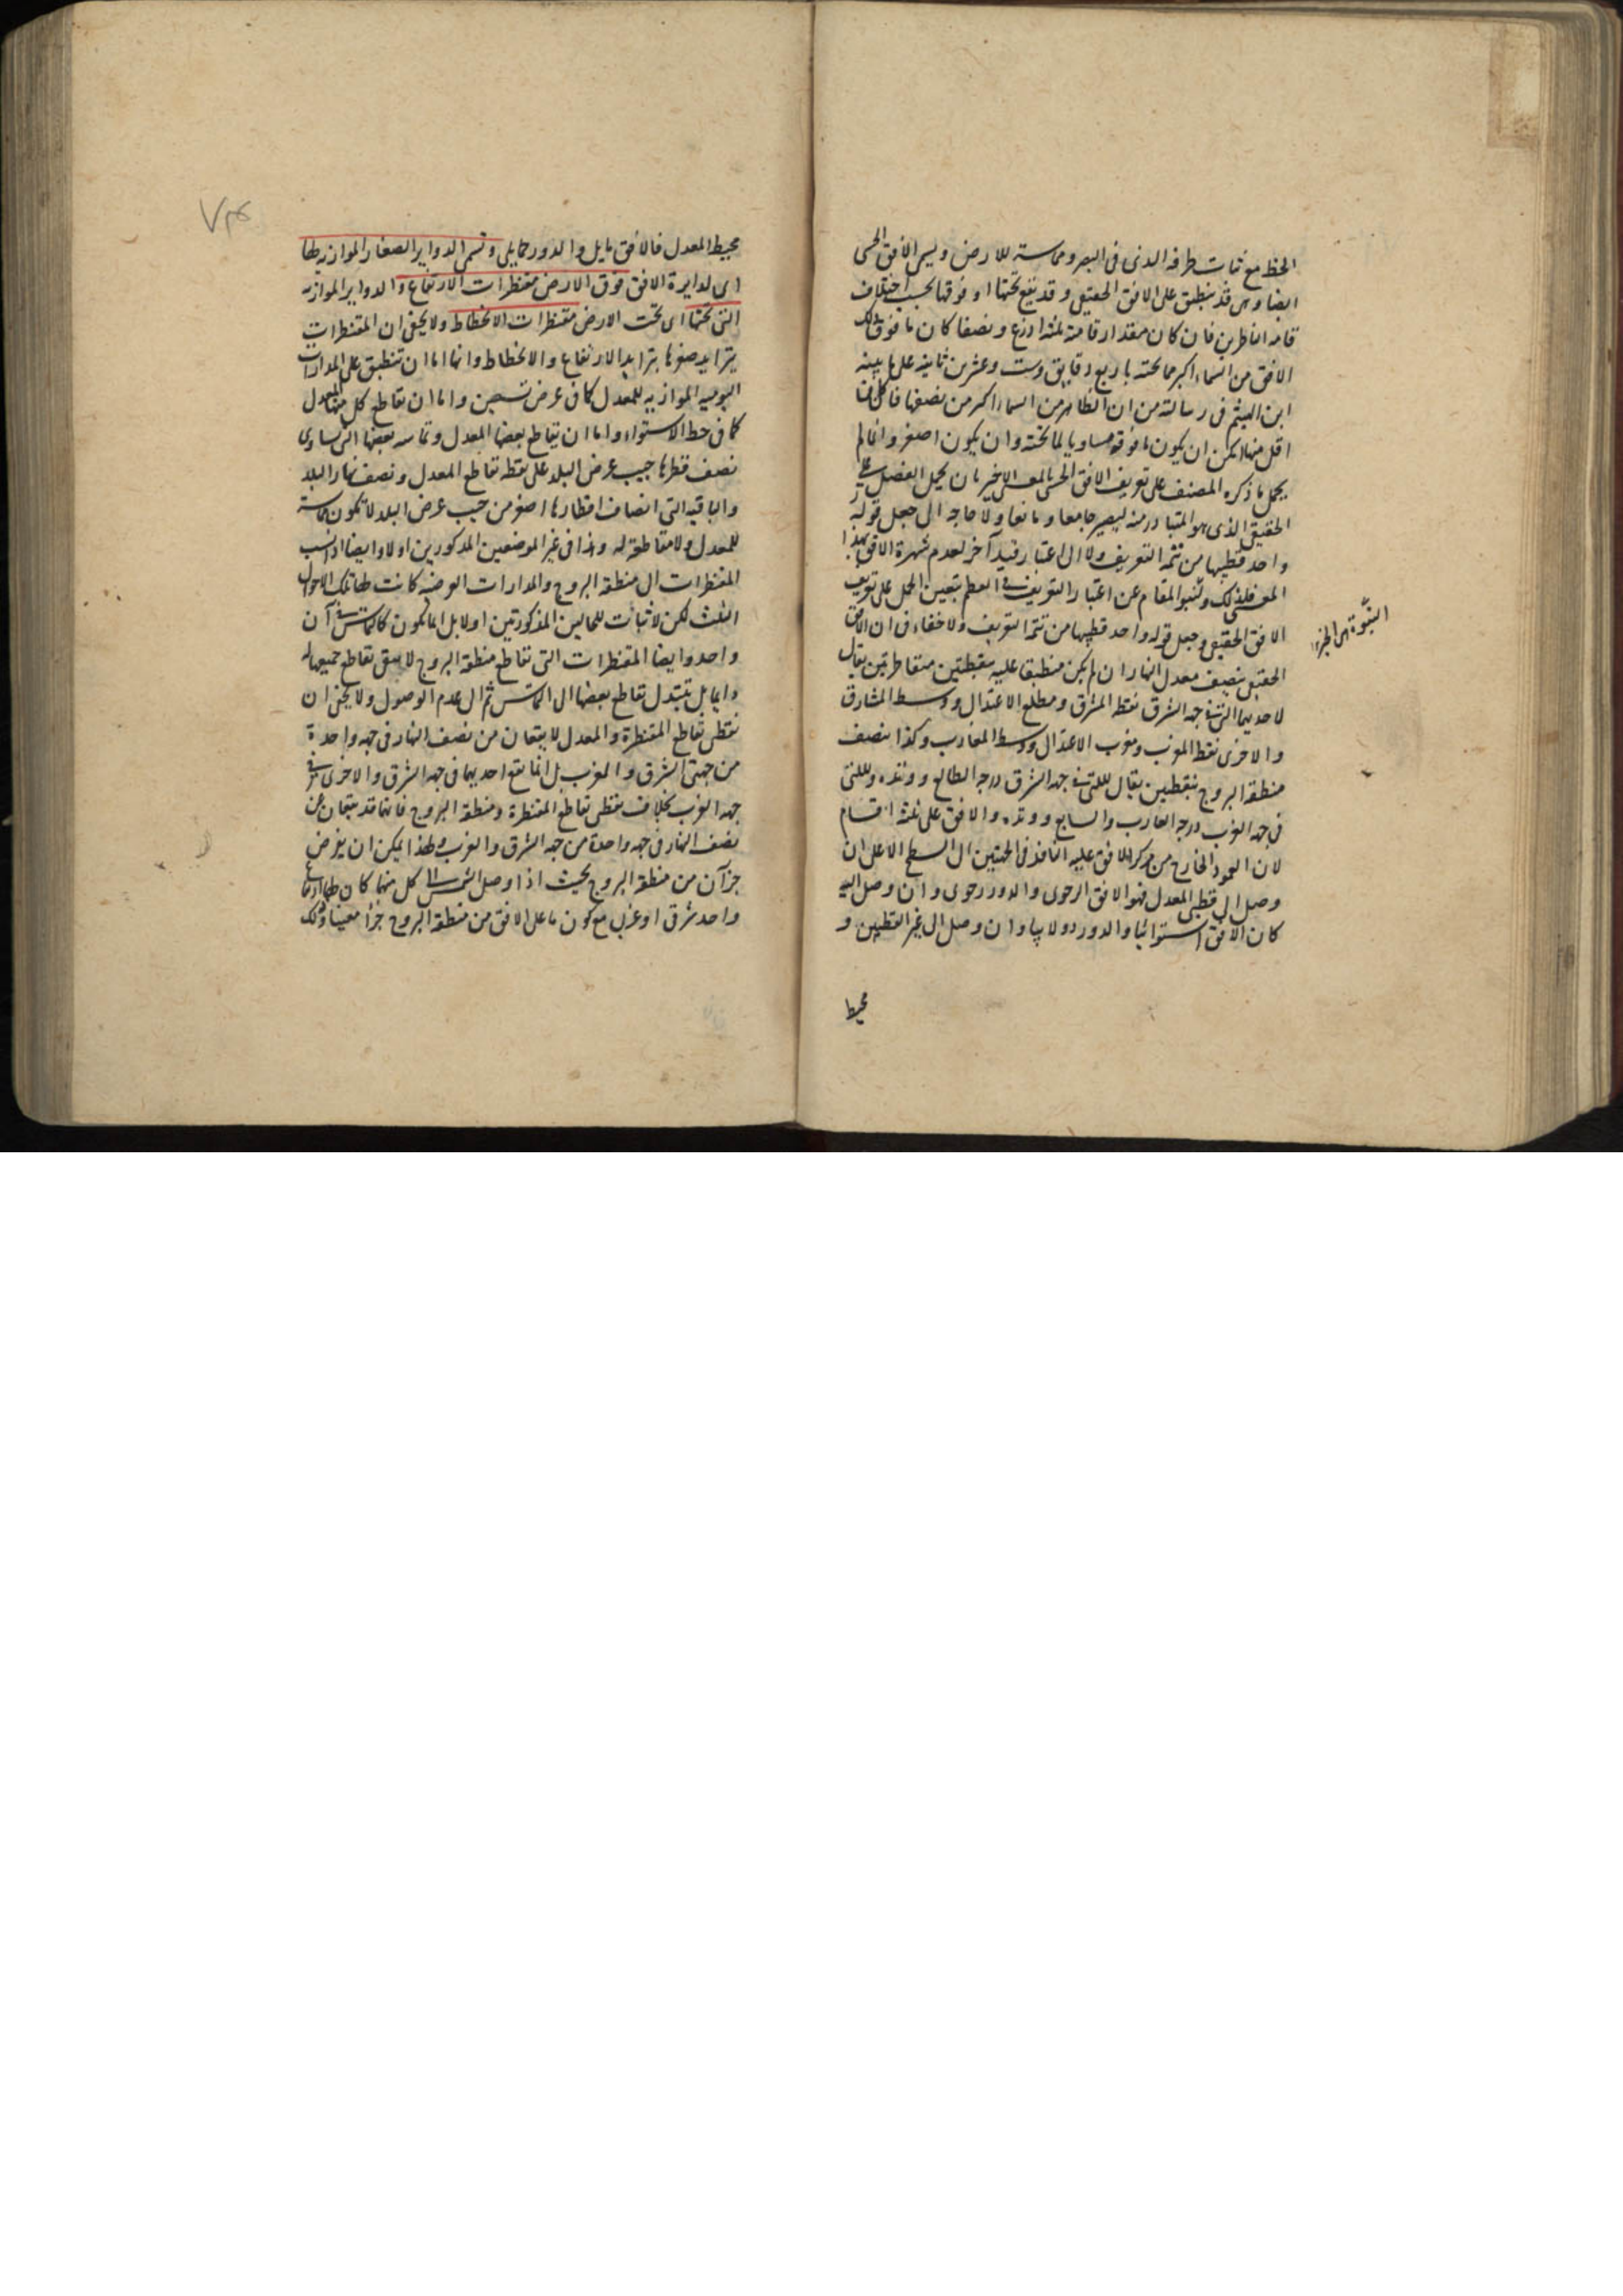 الخط مع ثبات طرفه الذى فى البصر ومماسته للارض ويسمى الافق الحسى
ايضا وهى قد ينطبق على الافق الحقيقى وقد يقع تحتها او فوقها بحسب اختلاف
قامة الناظرين فان كان مقدار قامته ثلثة اذرع ونصفا كان ما فوق
الافق من السماء اكبر مما تحته باربع دقايق وست وعشرين ثانية على ما بينه
ابن الهيثم فى رسالته من ان الظاهر من السماء اكثر من نصفها فان كان
اقل منها امكن ان يكون ما فوقه مساويا لما تحته وان يكون اصغر وانما لم
يحمل ما ذكره المصنف على تعريف الافق الحسى بالمعنى الاخير بان يحمل الفصل على
الحقيقى الذى هو المتبادر منه ليصير جامعا ومانعا ولا حاجة الى جعل قوله
واحد قطبيها من تتمة التعريف ولا الى اعتبار قيد آخر لعدم شهرة الافق بهذا
المعنى فلذلك ولنبو المقام عن اعتبار التعريف فى العظم يتعين الحمل على تعريف
الافق الحقيقى وجعل قوله واحد قطبيها من تتمة التعريف ولا خفاء فى ان الافق
الحقيقى ينصف معدل النهار ان لم يكن منطبقا عليه بنقطتين متقاطرتين يقال
لاحديهما التى فى جهة الشرق نقطة المشرق ومطلع الاعتدال ووسط المشارق
والاخرى نقطة المغرب ومغرب الاعتدال ووسط المغارب وكذا ينصف
منطقة البروج بنقطتين يقال للتى فى جهة الشرق درجة الطالع ووتده وللتى
فى جهة الغرب درجة الغارب والسابع ووتده والافق على ثلثة اقسام
لان العمود الخارج من مركز الافق عليه النافذ فى الجهتين الى السطح الاعلى ان
وصل الى قطبى المعدل فهو الافق الرحوى والدور رحوى وان وصل اليه
كان الافق استوائيا والدور دولابيا وان وصل الى غير القطبين و
محيط
النبوة
محيط المعدل فالافق مايل والدور حمايلى وتسمى الدواير الصغار الموازية لها
اى لدايرة الافق فوق الارض مقنطرات الارتفاع والدواير الموازية
التى تحتها اى تحت الارض مقنطرات الانحطاط ولا يخفى ان المقنطرات
يتزايد صغرها بتزايد الارتفاع والانحطاط وانها اما ان تنطبق على المدارات
اليومية الموازية للمعدل كما فى عرض تسعين واما ان تقاطع كل منها المعدل
كما فى خط الاستواء واما ان يقاطع بعضها المعدل وتماسه بعضها التى تساوى
نصف قطرها جيب عرض البلد على نقطة تقاطع المعدل ونصف نهار البلد
والباقية التى انصاف اقطارها اصغر من جيب عرض البلد لا تكون مماسة
للمعدل ولا مقاطعة له وهذا فى غير الموضعين المذكورين اولا وايضا اذا نسب
المقنطرات الى منطقة البروج والمدارات العرضية كانت لها تلك الاحوال
الثلث لكن لا ثبات للحالين المذكورتين اولا بل انما تكون كالتماس فى آن
واحد وايضا المقنطرات التى تقاطع منطقة البروج لا يبقى تقاطع جميعها له
دايما بل يتبدل تقاطع بعضها الى التماس ثم الى عدم الوصول ولا يخفى ان
نقطتى تقاطع المقنطرة والمعدل لا يقعان من نصف النهار فى جهة واحدة
من جهتى الشرق والمغرب بل انما يقع احديهما فى جهة الشرق والاخرى فى
جهة الغرب بخلاف نقطتى تقاطع المقنطرة ومنطقة البروج فانهما قد يقعان من
نصف النهار فى جهة واحدة من جهة الشرق والغرب ولهذا يمكن ان يفرض
جزآن من منطقة البروج بحيث اذا وصل الشمس الى كل منهما كان لهما ارتفاع
واحد شرقى او غربى مع كون ما على الافق من منطقة البروج جزأ معينا وذلك